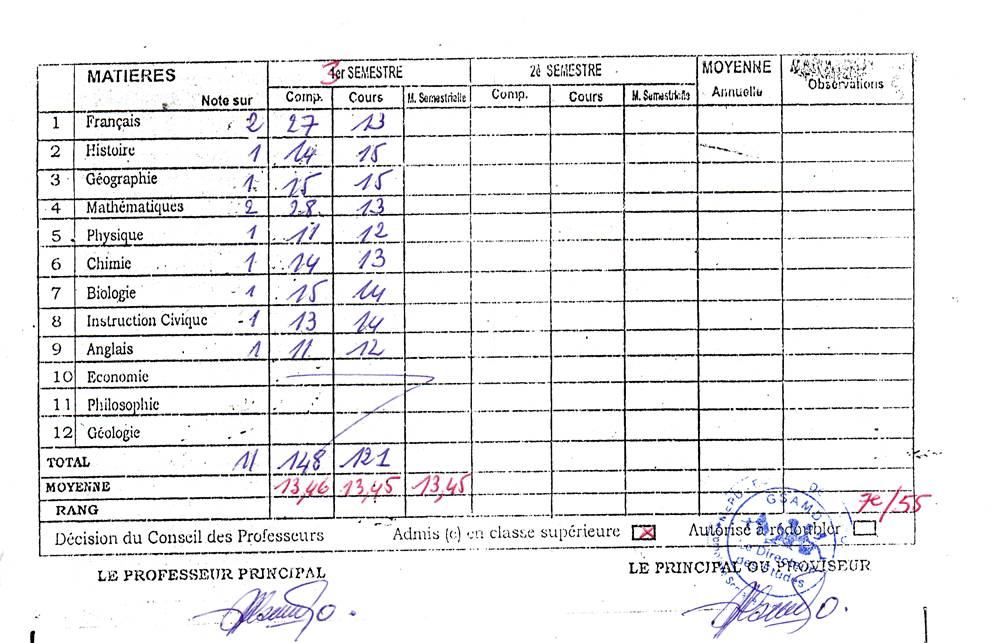 MATIERES 3er SEMESTRE 2è SEMESTRE MOYENNE
Note sur Comp. Cours M. Semestrielle Comp. Cours M. Semestrielle Annuelle Observations
1 Français 2 27 13
2 Histoire 1 14 15
3 Géographie 1 15 15
4 Mathématiques 2 28 13
5 Physique 1 11 12
6 Chimie 1 14 13
7 Biologie 1 15 14
8 Instruction Civique 1 13 14
9 Anglais 1 11 12
10 Economie
11 Philosophie
12 Géologie
TOTAL 11 148 121
MOYENNE 13,46 13,45 13,45
RANG 7e/55
Décision du Conseil des Professeurs Admis (e) en classe supérieure X Autorisé à rédoubler
LE PROFESSEUR PRINCIPAL LE PRINCIPAL OU PROVISEUR
GSAMD
Le Directeur
des Études